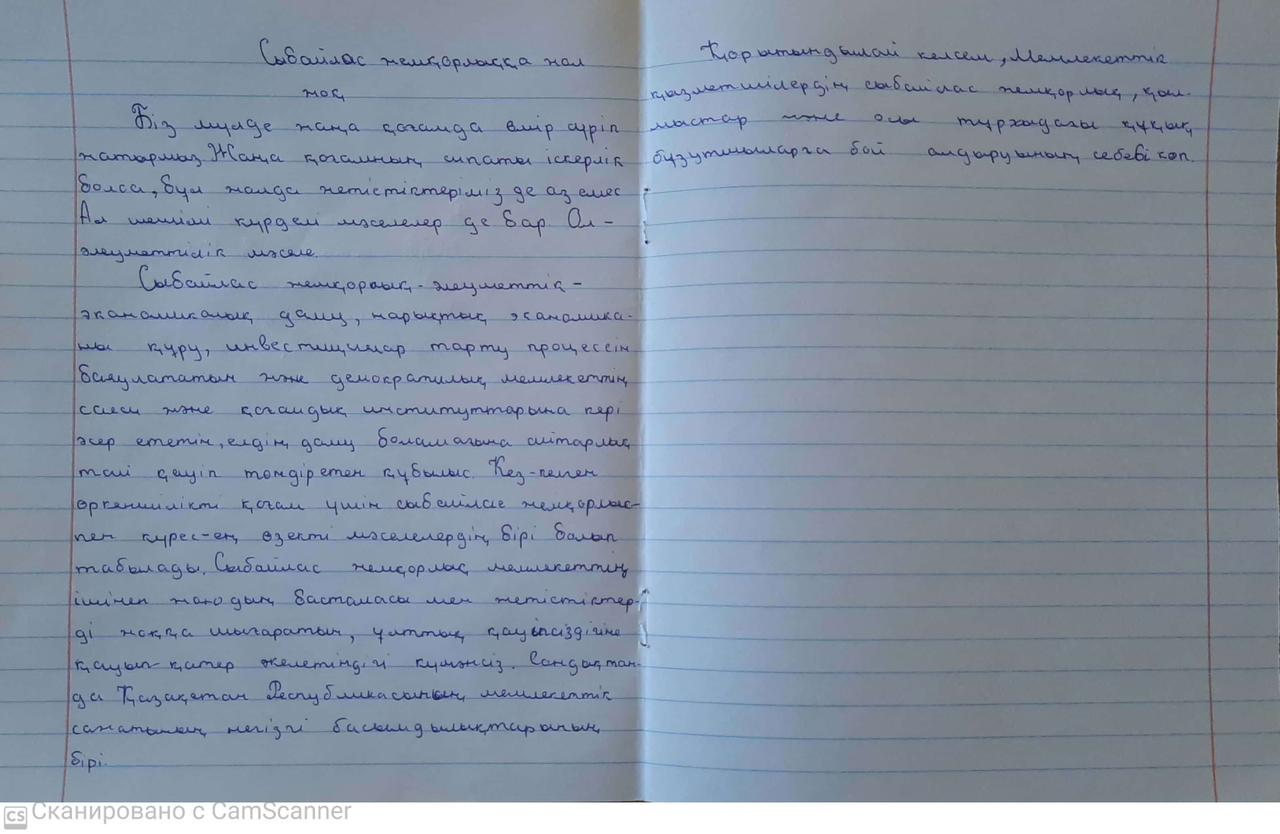 Сыбайлас жемқорлыққа жол
жоқ
Біз мүлде жаңа қоғамда өмір сүріп
жатырмыз. Жаңа қоғамның сипаты іскерлік
болса, бұл жолда жетістіктеріміз де аз емес
Ал шешімі күрделі мәселелер де бар. Ол -
әлеуметтілік мәселе.
Сыбайлас жемқорлық - әлеуметтік -
экономикалық даму, нарықтық экономика-
ны құру, инвестициялар тарту процессін
баяулататын және демократилық мемлекеттің
саяси және қоғамдық институттарына кері
әсер ететін, елдің даму болашағына айтарлық
тай қауіп төндіретен құбылыс. Кез-келген
өркениелікті қоғам үшін сыбайлас жемқорлық-
пен күрес-ең өзекті мәселелердің бірі болып
табылады. Сыбайлас жемқорлық мемлекеттің
ішінен жаюдың бастамасы мен жетістіктер-
ді жоққа шығаратын, ұлттық қауіпсіздігіне
қауып-қатер әкелетіндігі күмәнсіз. Сондықтан-
да Қазақстан Республикасының мемлекеттік
саясатының негізгі басымдылықтарының
бірі.
Қорытындылай келсем, Мемлекеттік
қызметшілердің сыбайлас жемқорлық, қыл-
мыстар және осы тұрғыдағы құқық
бұзушыларға бой алдыруының себебі көп.
Сканировано с CamScanner